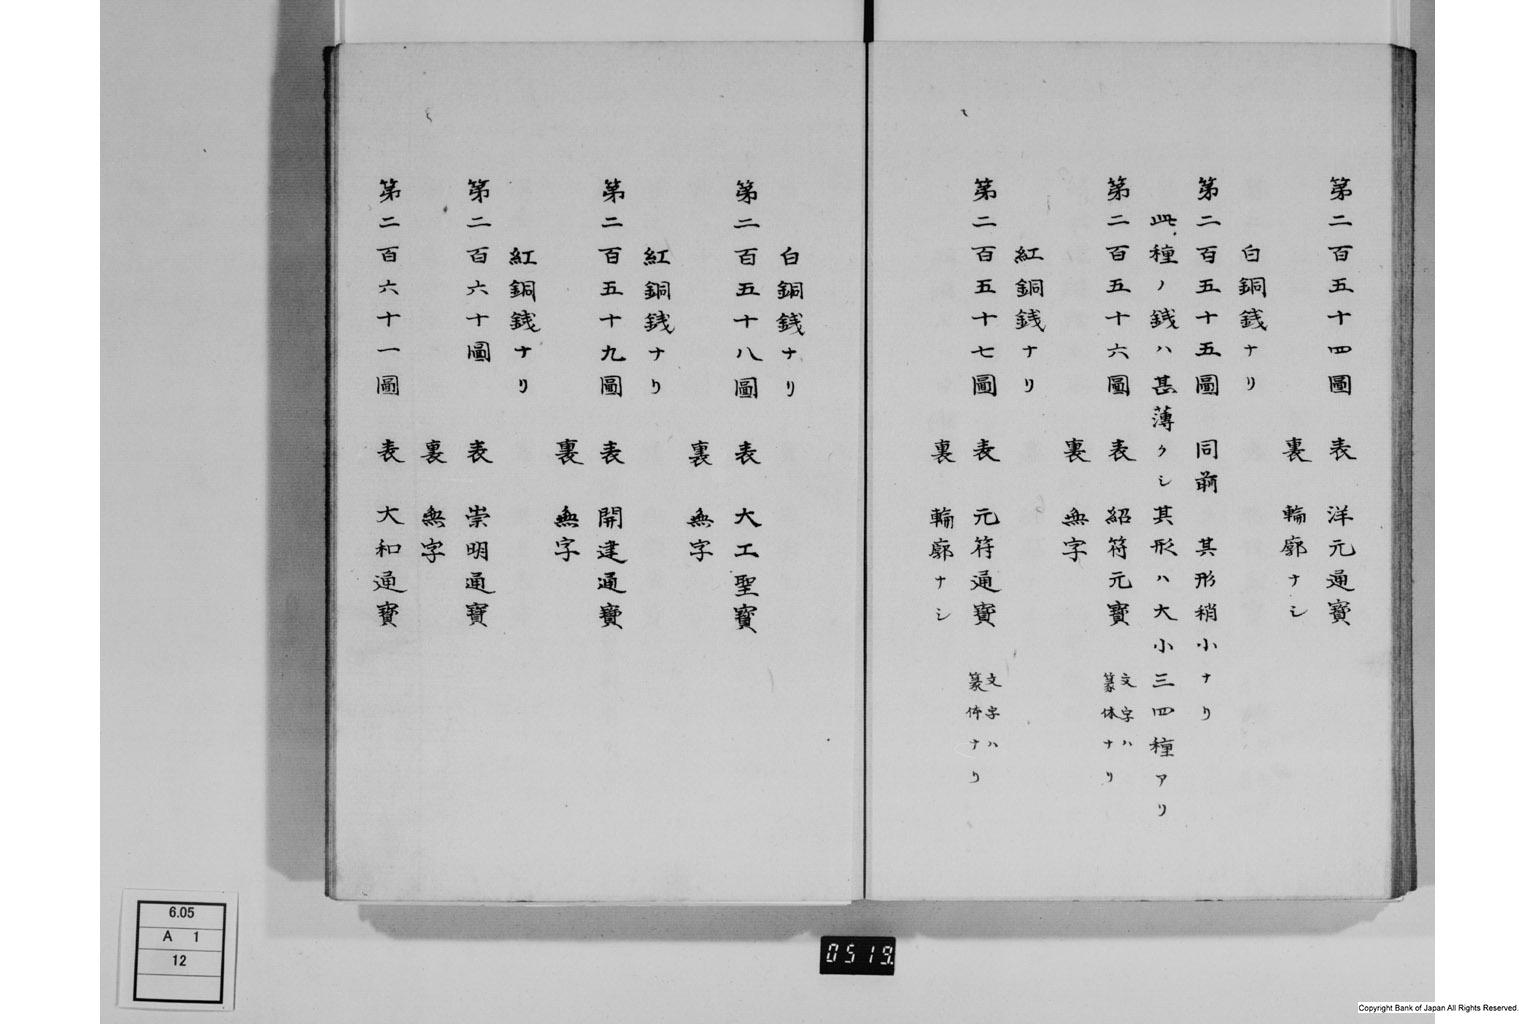 第二百五十四圖　表　洋元通寶
裏　輪廓ナシ
白銅銭ナリ
第二百五十五圖　同前　其形稍小ナリ
此種ノ銭ハ甚薄クシ其形ハ大小三四種アリ
第二百五十六圖　表　紹符元寶　文字ハ篆体ナリ
裏　無字
紅銅銭ナリ
第二百五十七圖　表　元符通寶　文字ハ篆体ナリ
裏　輪廓ナシ
白銅銭ナリ
第二百五十八圖　表　大工聖寶
裏　無字
紅銅銭ナリ
第二百五十九圖　表　開建通寶
裏　無字
紅銅銭ナリ
第二百六十圖　表　崇明通寶
裏　無字
第二百六十一圖　表　大和通寶
6.05
A 1
12
0519.
Copyright Bank of Japan All Rights Reserved.